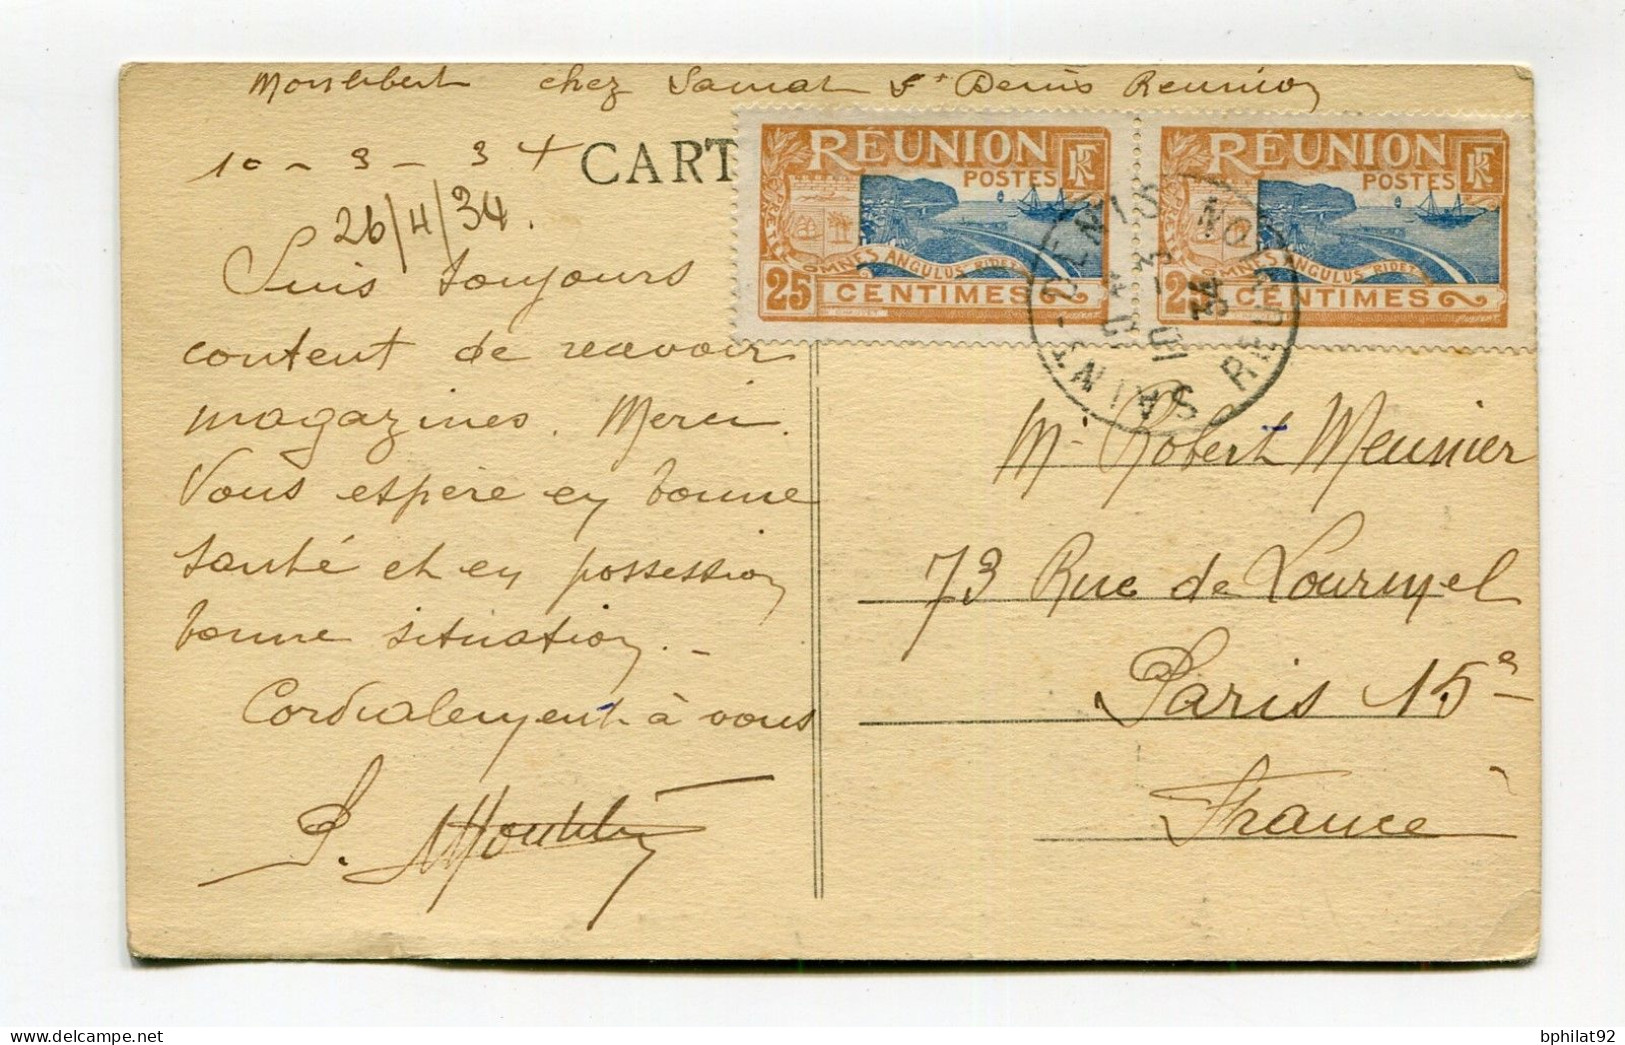 chez Samat St Denis Reunion
10 - 3 - 34
CART
26/4/34.
RÉUNION
POSTES
RF
OMNES ANGULUS RIDET
25
CENTIMES
RÉUNION
POSTES
RF
OMNES ANGULUS RIDET
25
CENTIMES
SAINT-DENIS
RÉUNION
10 - 3
34
Suis toujours
content de recevoir
magazines. Merci.
Vous espère en bonne
santé et en possession
bonne situation. -
Cordialement à vous
Mr Robert Meunier
73 Rue de Lourmel
Paris 15e
France
delcampe.net
bphilat92